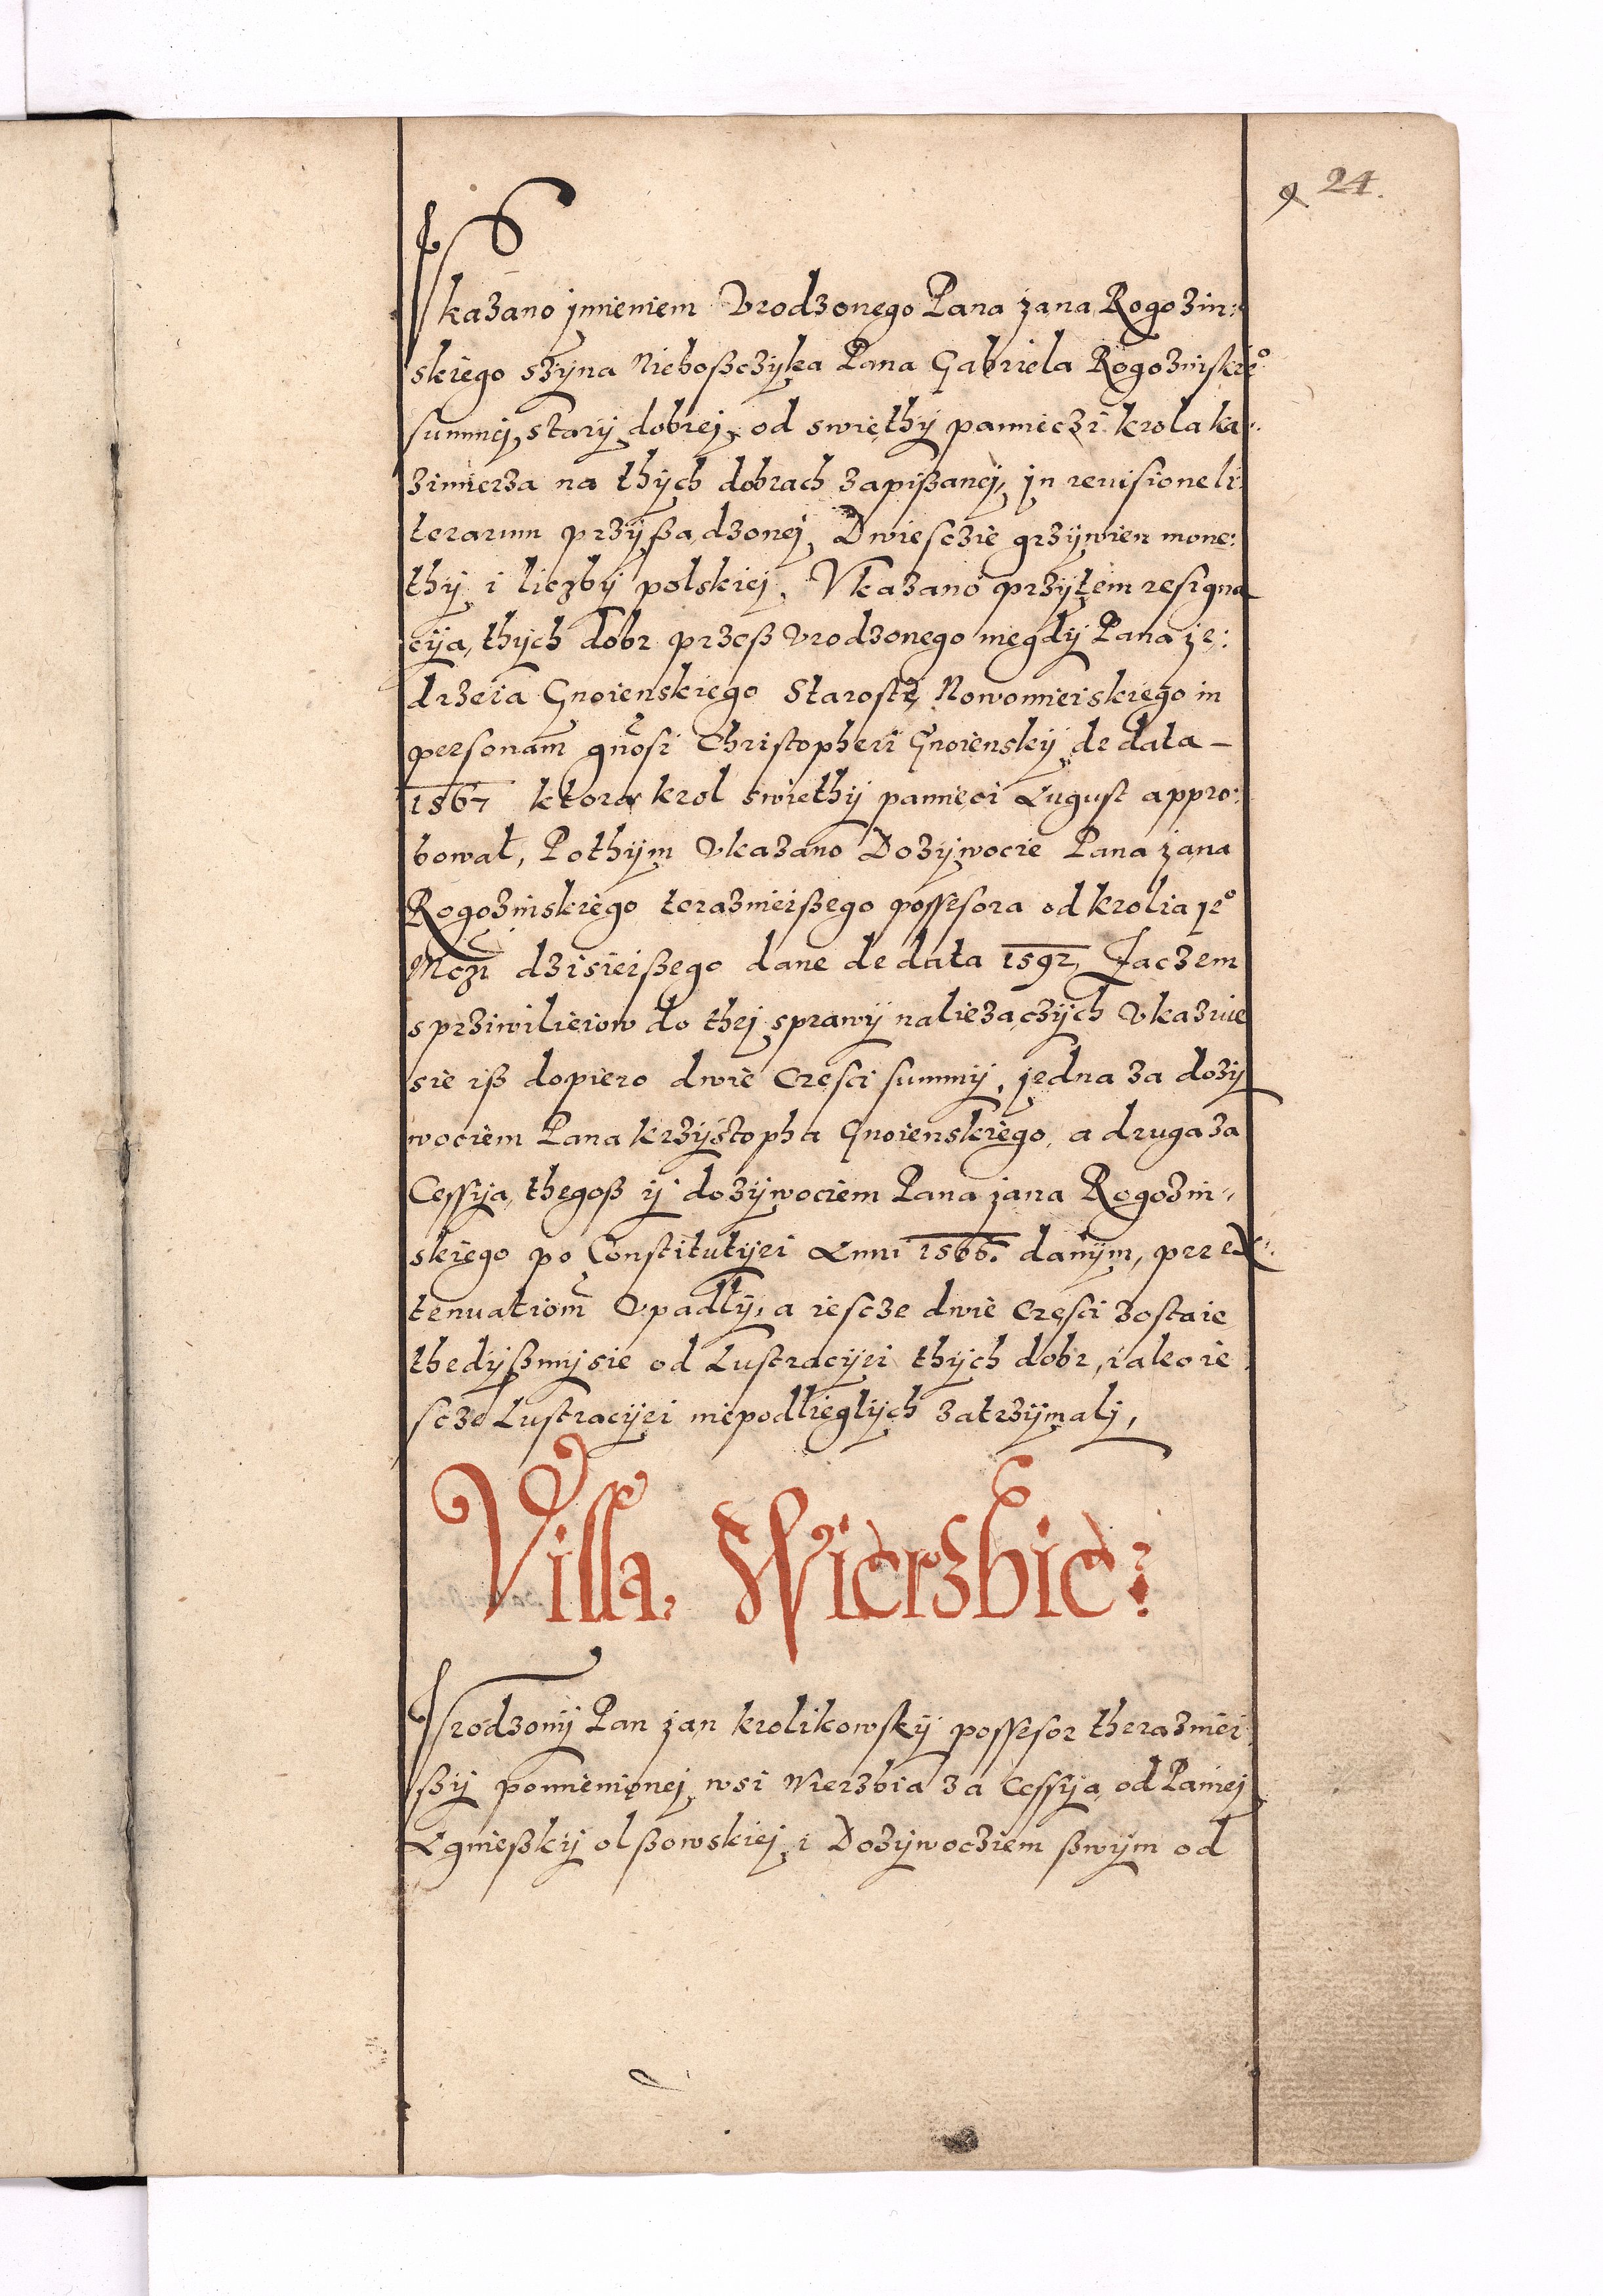 24.
Vkazano jmieniem Vrodzonego Pana jana Rogozin:
skiego szyna Nieboßczyka Pana Gabriela Rogozniskie°
summej stary dobrej, od swięthy pamieczi krola ka:
zimierza na thych dobrach zapißanej, jn reuisione li:
terarum przyßądzonej, Dwiesczie grzywien mone:
thy i liczby polskiej, Vkazano przytem resigna
cyją thych dobr przeß Vrodzonego niegdy Pana ję:
drzeia Gnoienskiego Starostę Nowomieiskiego in
personam gnosi Christopheri Gnoiensky de data –
1567 ktorą krol swiethy pamięci August appro:
bował, Pothym Vkazano Dozywocie Pana jana
Rogoznskiego teraznieißego possesora od krolia je°
Mczi dzisieißego dane de data 1592, Jaczem
s prziwilieiow do thej sprawy nalieząnczych Vkazuie
sie iß dopiero dwie Częsci summy, jedna za dozy
wociem Pana krzysztopha Gnoienskiego, a druga za
Cessyją thegoß y dozywociem Pana jana Rogozin:
skiego po Constitutyei Anni 1566. danym, per ex:
tenuationem Vpadły, a iescze dwie Częsci zostaie
thedyßmy sie od Lustracyei thych dobr, iako ie
scze Lustracyei niepodlieglych zatrzymaly,
Villa. Wierzbie:
Vrodzony Pan jan krolikowsky possesor therazniei
ßy pomienionej wsi Wierzbia za Cessyją od Paniej
Agnießky olßowskiej i Dozywocziem ßwym od